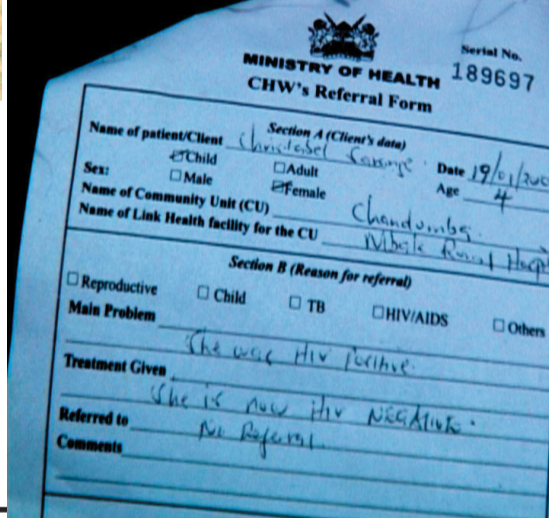 Serial No.
MINISTRY OF HEALTH 189697
CHW's Referral Form
Section A (Client's data)
Name of patient/Client Christabel
☑Child ☐Adult Date 19/01/20
Sex: ☐Male ☑Female Age 4
Name of Community Unit (CU) Chandumba
Name of Link Health facility for the CU Mbale Rural Hosp
Section B (Reason for referral)
☐ Reproductive ☐ Child ☐ TB ☐HIV/AIDS ☐ Others
Main Problem
She was HIV Positive.
Treatment Given
She is now HIV NEGATIVE.
Referred to No Referral
Comments